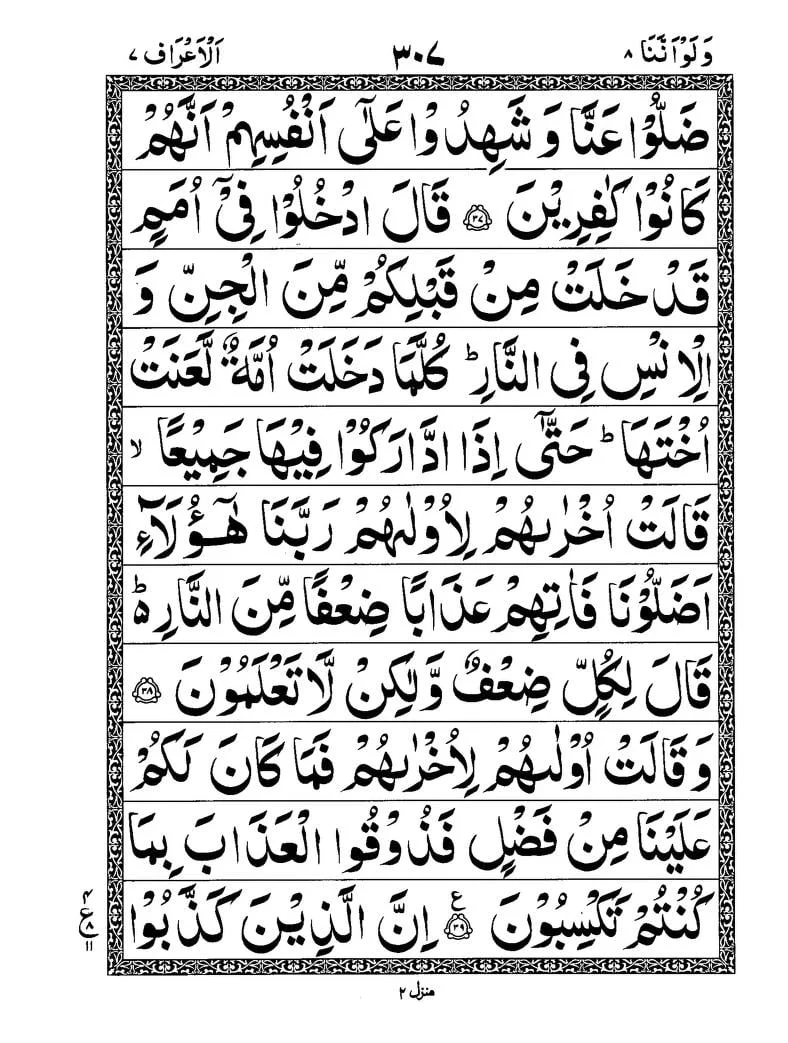 وَلَوْاَنَّنَا ٨ ٣٠٧ اَلْاَعْرَاف ٧
ضَلُّوْا عَنَّا وَ شَهِدُوْا عَلٰٓى اَنْفُسِهِمْ اَنَّهُمْ
كَانُوْا كٰفِرِيْنَ ۝٣٧ قَالَ ادْخُلُوْا فِيْٓ اُمَمٍ
قَدْ خَلَتْ مِنْ قَبْلِكُمْ مِّنَ الْجِنِّ وَ
الْاِنْسِ فِي النَّارِ ؕ كُلَّمَا دَخَلَتْ اُمَّةٌ لَّعَنَتْ
اُخْتَهَا ؕ حَتّٰٓى اِذَا ادَّارَكُوْا فِيْهَا جَمِيْعًا ۙ
قَالَتْ اُخْرٰىهُمْ لِاُوْلٰىهُمْ رَبَّنَا هٰٓؤُلَآءِ
اَضَلُّوْنَا فَاٰتِهِمْ عَذَابًا ضِعْفًا مِّنَ النَّارِ ۬ؕ
قَالَ لِكُلٍّ ضِعْفٌ وَّلٰكِنْ لَّا تَعْلَمُوْنَ ۝٣٨
وَقَالَتْ اُوْلٰىهُمْ لِاُخْرٰىهُمْ فَمَا كَانَ لَكُمْ
عَلَيْنَا مِنْ فَضْلٍ فَذُوْقُوا الْعَذَابَ بِمَا
كُنْتُمْ تَكْسِبُوْنَ ۝٣٩ ع اِنَّ الَّذِيْنَ كَذَّبُوْا
٤
ع ٨
١١
منزل ٢